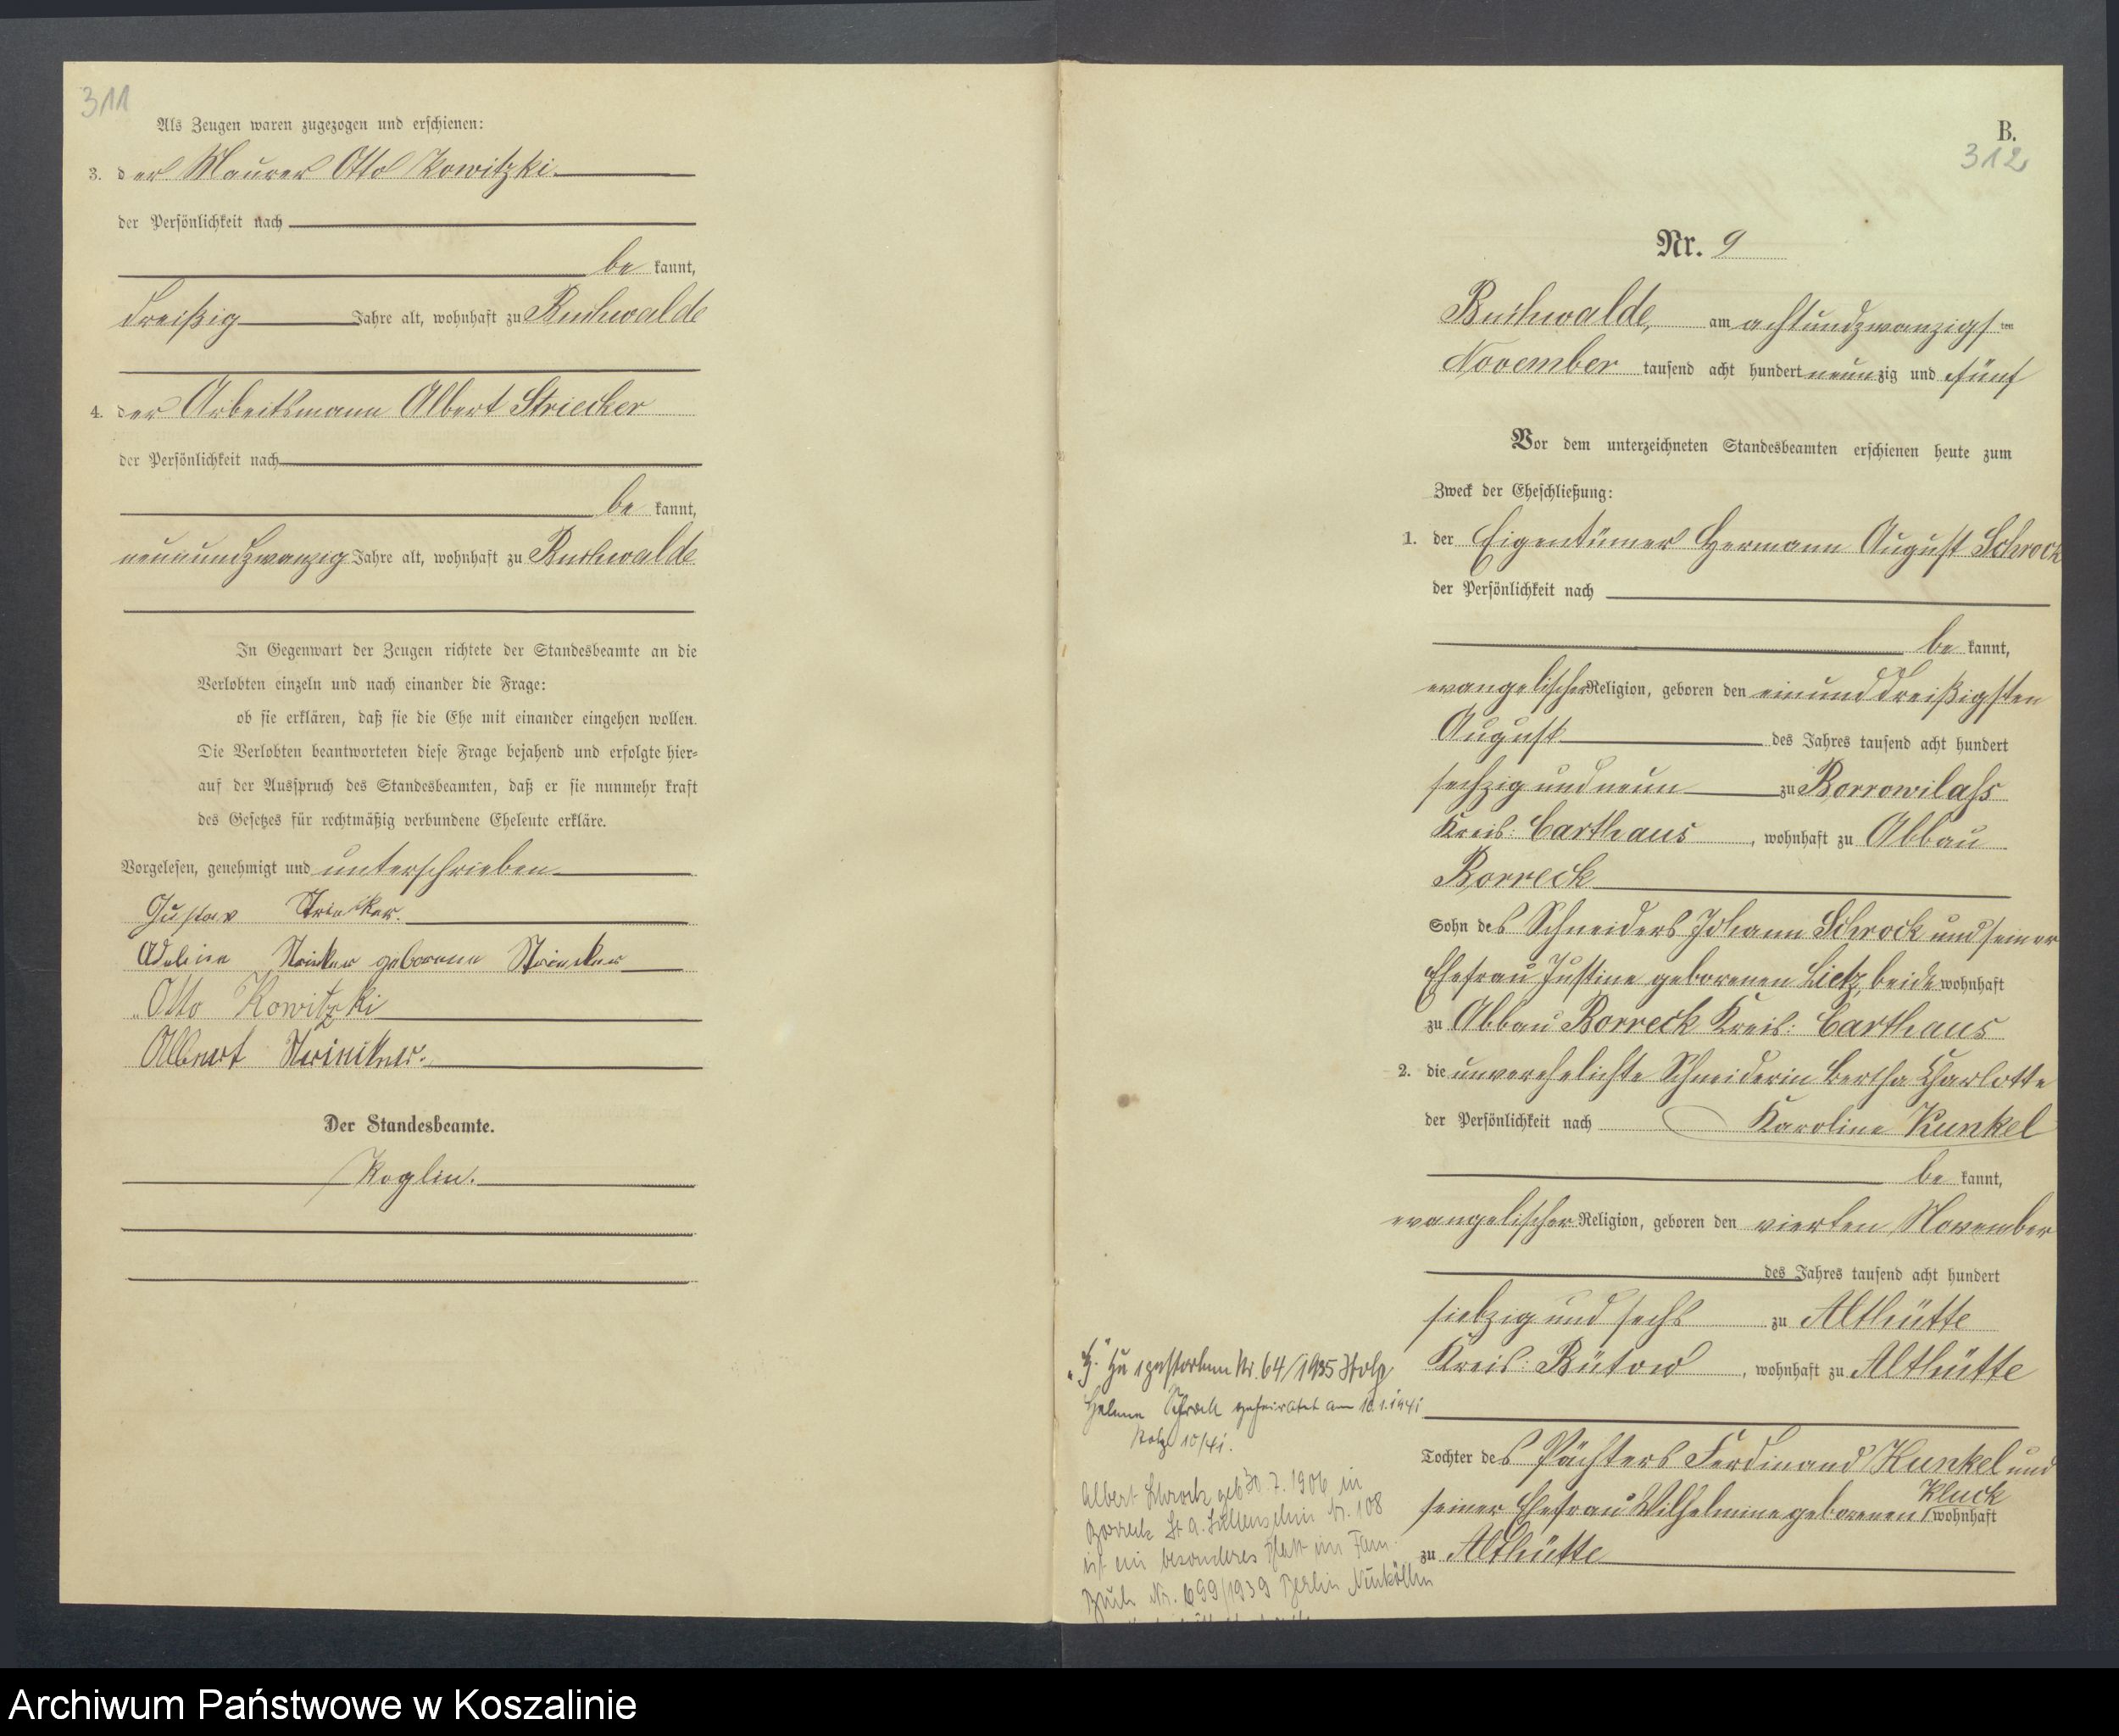 311
Als Zeugen waren zugezogen und erschienen:
3. der Maurer Otto Kowitzki
der Persönlichkeit nach
be kannt,
dreißig Jahre alt, wohnhaft zu Buchwalde
4. der Arbeitsmann Albert Striecker
der Persönlichkeit nach
be kannt,
neunundzwanzig Jahre alt, wohnhaft zu Buchwalde
In Gegenwart der Zeugen richtete der Standesbeamte an die
Verlobten einzeln und nach einander die Frage:
ob sie erklären, daß sie die Ehe mit einander eingehen wollen.
Die Verlobten beantworteten diese Frage bejahend und erfolgte hier-
auf der Ausspruch des Standesbeamten, daß er sie nunmehr kraft
des Gesetzes für rechtmäßig verbundene Eheleute erkläre.
Vorgelesen, genehmigt und unterschrieben
Gustav Striecker.
Striecker geborene Striecker
Otto Kowitzki
Albert Striecker.
Der Standesbeamte.
Koglin.
B.
312
Nr. 9
Buchwalde, am achtundzwanzigsten
November tausend acht hundert neunzig und fünf
Vor dem unterzeichneten Standesbeamten erschienen heute zum
Zweck der Eheschließung:
1. der Eigentümer Hermann August Schrock
der Persönlichkeit nach
be kannt,
evangelischer Religion, geboren den einunddreißigsten
August des Jahres tausend acht hundert
sechzig und neun zu Borrowilaß
Kreis: Carthaus, wohnhaft zu Abbau
Borreck
Sohn des Schneiders Johann Schrock und seiner
Ehefrau Justine geborenen Lietz, beide wohnhaft
zu Abbau Borreck Kreis: Carthaus
2. die unverehelichte Schneiderin Bertha Charlotte
der Persönlichkeit nach Karoline Kunkel
be kannt,
evangelischer Religion, geboren den vierten November
des Jahres tausend acht hundert
siebzig und sechs zu Althütte
Kreis: Bütow, wohnhaft zu Althütte
Tochter des Pächters Ferdinand Kunkel und
seiner Ehefrau Wilhelmine geborenen Kluck wohnhaft
zu Althütte
Zu 1 gestorben Nr. 64/1935 Stolp
Helene Schrock geheiratet am 10.1.1941
Stolp 10/41.
Albert Schrock geb 30.7.1906 in
Borreck St.A. Nr. 108
ist ein besonderes Blatt im Fam.
Buch Nr. 699/1939 Berlin Neukölln
Archiwum Państwowe w Koszalinie